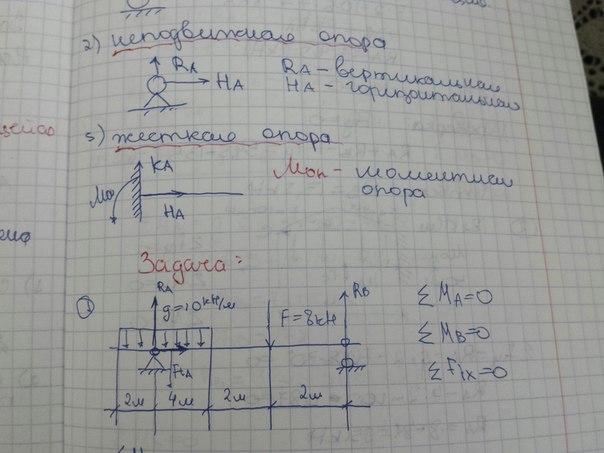 2) неподвижная опора
RA HA
RA - вертикальная
HA - горизонтальная
3) жесткая опора
RA
Mоп
HA
Mоп - моментная опора
Задача:
1
RA
g=10 кН/м
F=8кН
RB
HA
2м 4м 2м 2м
∑ MA=0
∑ MB=0
∑ Fix=0